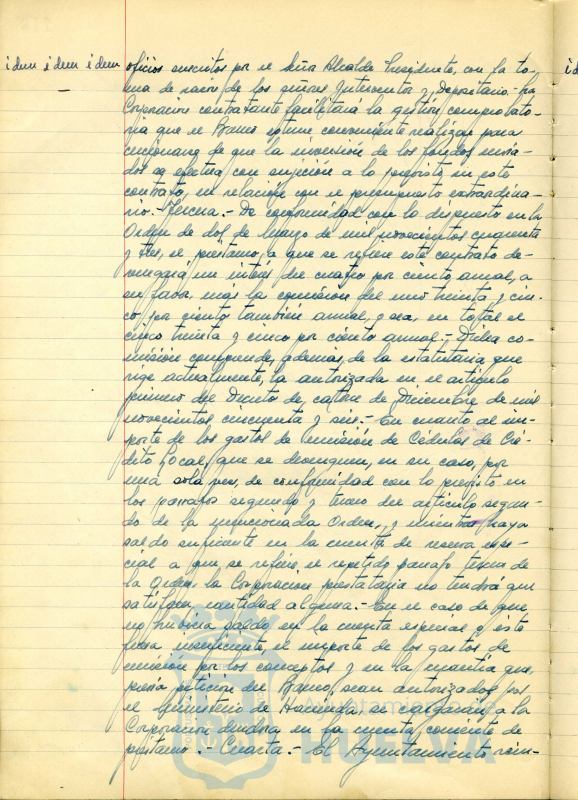 idem idem idem
oficios suscritos por el señor Alcalde Presidente, con la to-
ma de razón de los señores Interventor y Depositario.- La
Corporación contratante facilitará la gestión comprobato-
ria que el Banco estime conveniente realizar para
cerciorarse de que la inversión de los fondos envia-
dos se efectúa con sujeción a lo previsto en este
contrato, en relación con el presupuesto extraordina-
rio.- Tercera.- De conformidad con lo dispuesto en la
Orden de dos de Marzo de mil novecientos cincuenta
y tres, el préstamo, a que se refiere este contrato de-
vengará un interés del cuatro por ciento anual, a
su favor, más la comisión del uno treinta y cin-
co por ciento también anual, o sea, en total el
cinco treinta y cinco por ciento anual.- Dicha co-
misión comprende, además, de la estatutaria que
rige actualmente, la autorizada en el artículo
primero del Decreto de catorce de Diciembre de mil
novecientos cincuenta y seis.- En cuanto al im-
porte de los gastos de emisión de Cédulas de Cré-
dito Local, que se devenguen, en su caso, por
una sola vez, de conformidad con lo previsto en
los párrafos segundo y tercero del artículo segun-
do de la mencionada Orden, y mientras haya
saldo suficiente en la cuenta de reserva espe-
cial a que se refiere el repetido párrafo tercero de
la Orden la Corporación prestataria no tendrá que
satisfacer cantidad alguna.- En el caso de que
no hubiera saldo en la cuenta especial o éste
fuera insuficiente, el importe de los gastos de
emisión por los conceptos y en la cuantía que,
previa petición del Banco, sean autorizados por
el Ministerio de Hacienda, se cargarán a la
Corporación deudora, en la cuenta corriente de
préstamo.- Cuarta.- El Ayuntamiento reim-
id
Ayuntamiento de
HUELVA